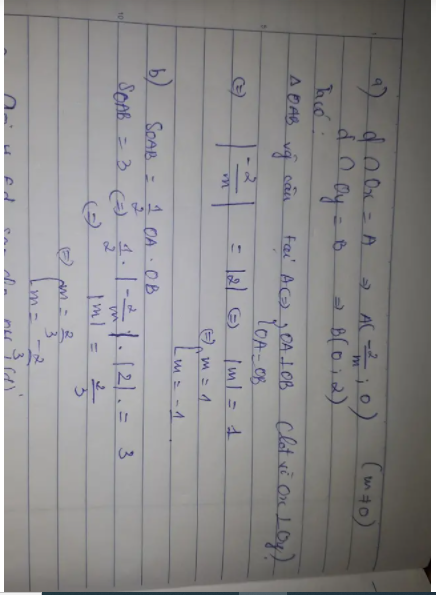 a) d ∩ Ox = A => A(-2/m ; 0) (m ≠ 0)
d ∩ Oy = B => B(0; 2)
Ta có:
Δ OAB vg cân tại A <=> { OA ⊥ OB (lđ vì Ox ⊥ Oy)
OA = OB
<=> |-2/m| = |2| <=> |m| = 1
<=> [ m = 1
m = -1
b) SOAB = 1/2 OA . OB
SOAB = 3 <=> 1/2 . |-2/m| . |2| = 3
<=> |m| = 2/3
<=> [ m = 2/3
m = -2/3